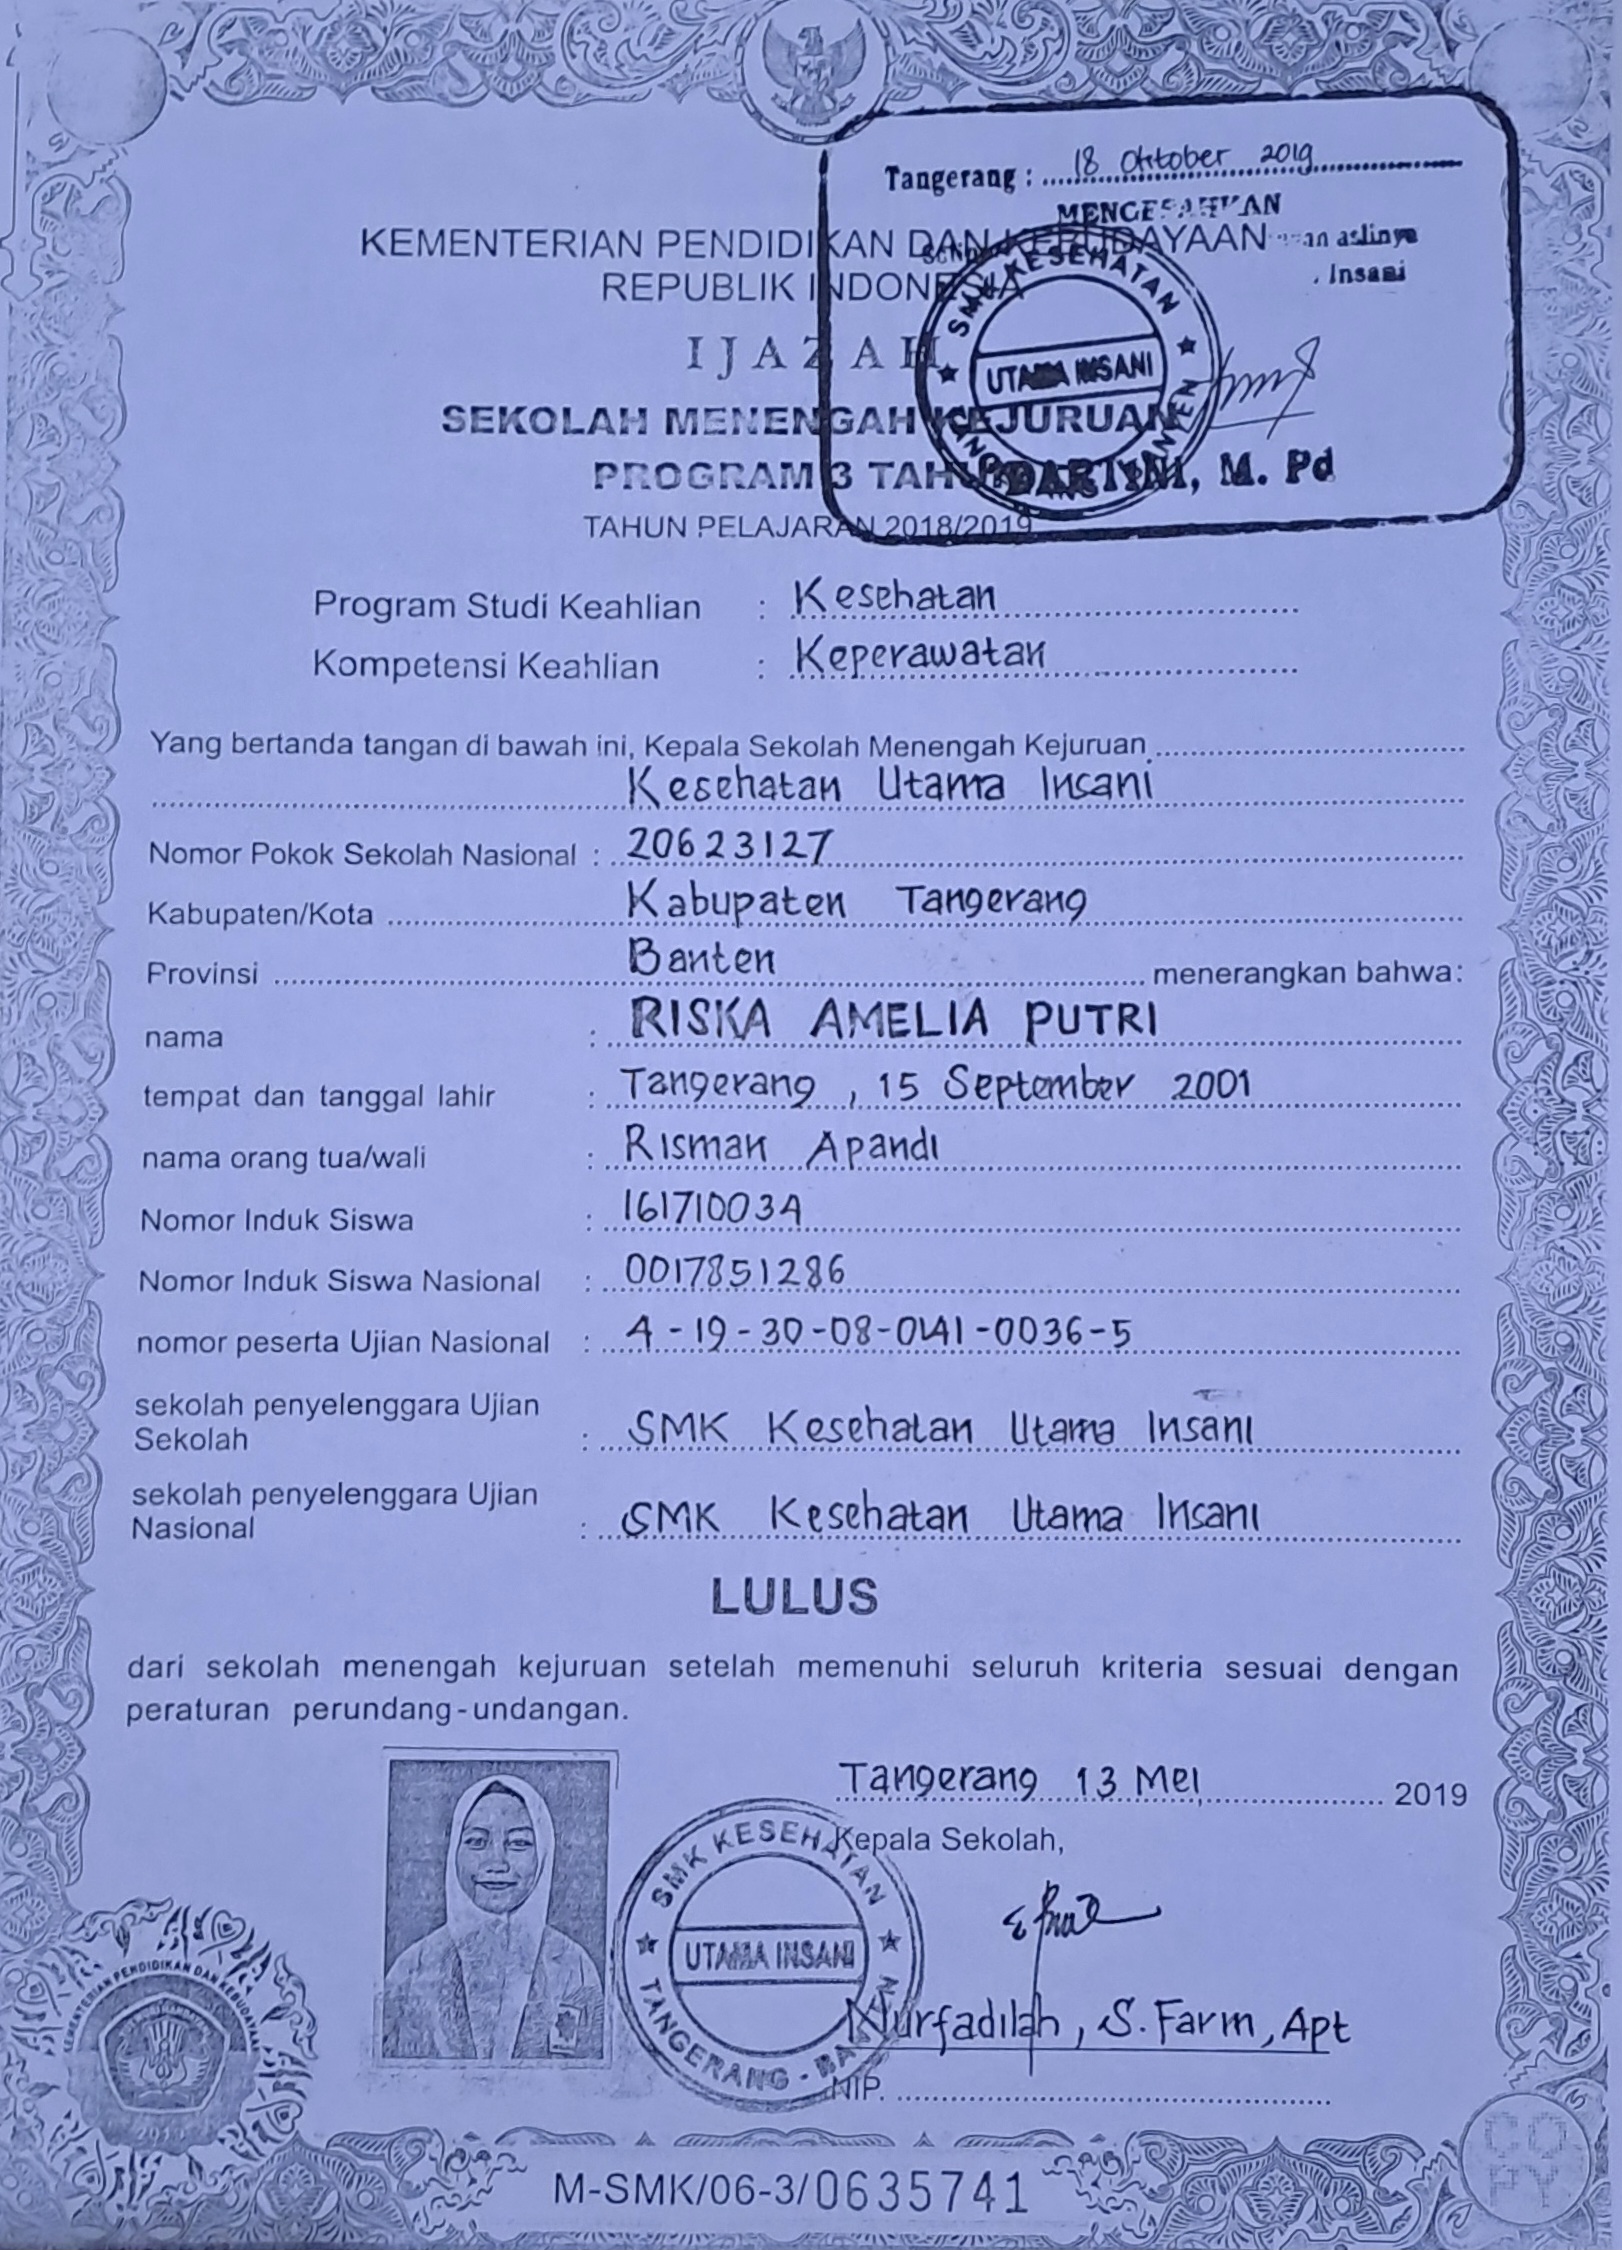 Tangerang : 18 Oktober 2019
MENGESAHKAN
an aslinya
Insani
KEMENTERIAN PENDIDIKAN DAN KEBUDAYAAN
REPUBLIK INDONESIA
IJAZAH
SEKOLAH MENENGAH KEJURUAN
PROGRAM 3 TAHUN
TAHUN PELAJARAN 2018/2019
SMK KESEHATAN
UTAMA INSANI
DARTINI, M. Pd
Program Studi Keahlian : Kesehatan
Kompetensi Keahlian : Keperawatan
Yang bertanda tangan di bawah ini, Kepala Sekolah Menengah Kejuruan
Kesehatan Utama Insani
Nomor Pokok Sekolah Nasional : 20623127
Kabupaten/Kota Kabupaten Tangerang
Provinsi Banten menerangkan bahwa:
nama : RISKA AMELIA PUTRI
tempat dan tanggal lahir : Tangerang, 15 September 2001
nama orang tua/wali : Risman Apandi
Nomor Induk Siswa : 161710034
Nomor Induk Siswa Nasional : 0017851286
nomor peserta Ujian Nasional : 4-19-30-08-0141-0036-5
sekolah penyelenggara Ujian
Sekolah : SMK Kesehatan Utama Insani
sekolah penyelenggara Ujian
Nasional : SMK Kesehatan Utama Insani
LULUS
dari sekolah menengah kejuruan setelah memenuhi seluruh kriteria sesuai dengan
peraturan perundang-undangan.
Tangerang 13 Mei 2019
Kepala Sekolah,
SMK KESEHATAN
UTAMA INSANI
TANGERANG - BANTEN
Nurfadilah, S.Farm, Apt
NIP.
KEMENTERIAN PENDIDIKAN DAN KEBUDAYAAN
M-SMK/06-3/0635741
COPY